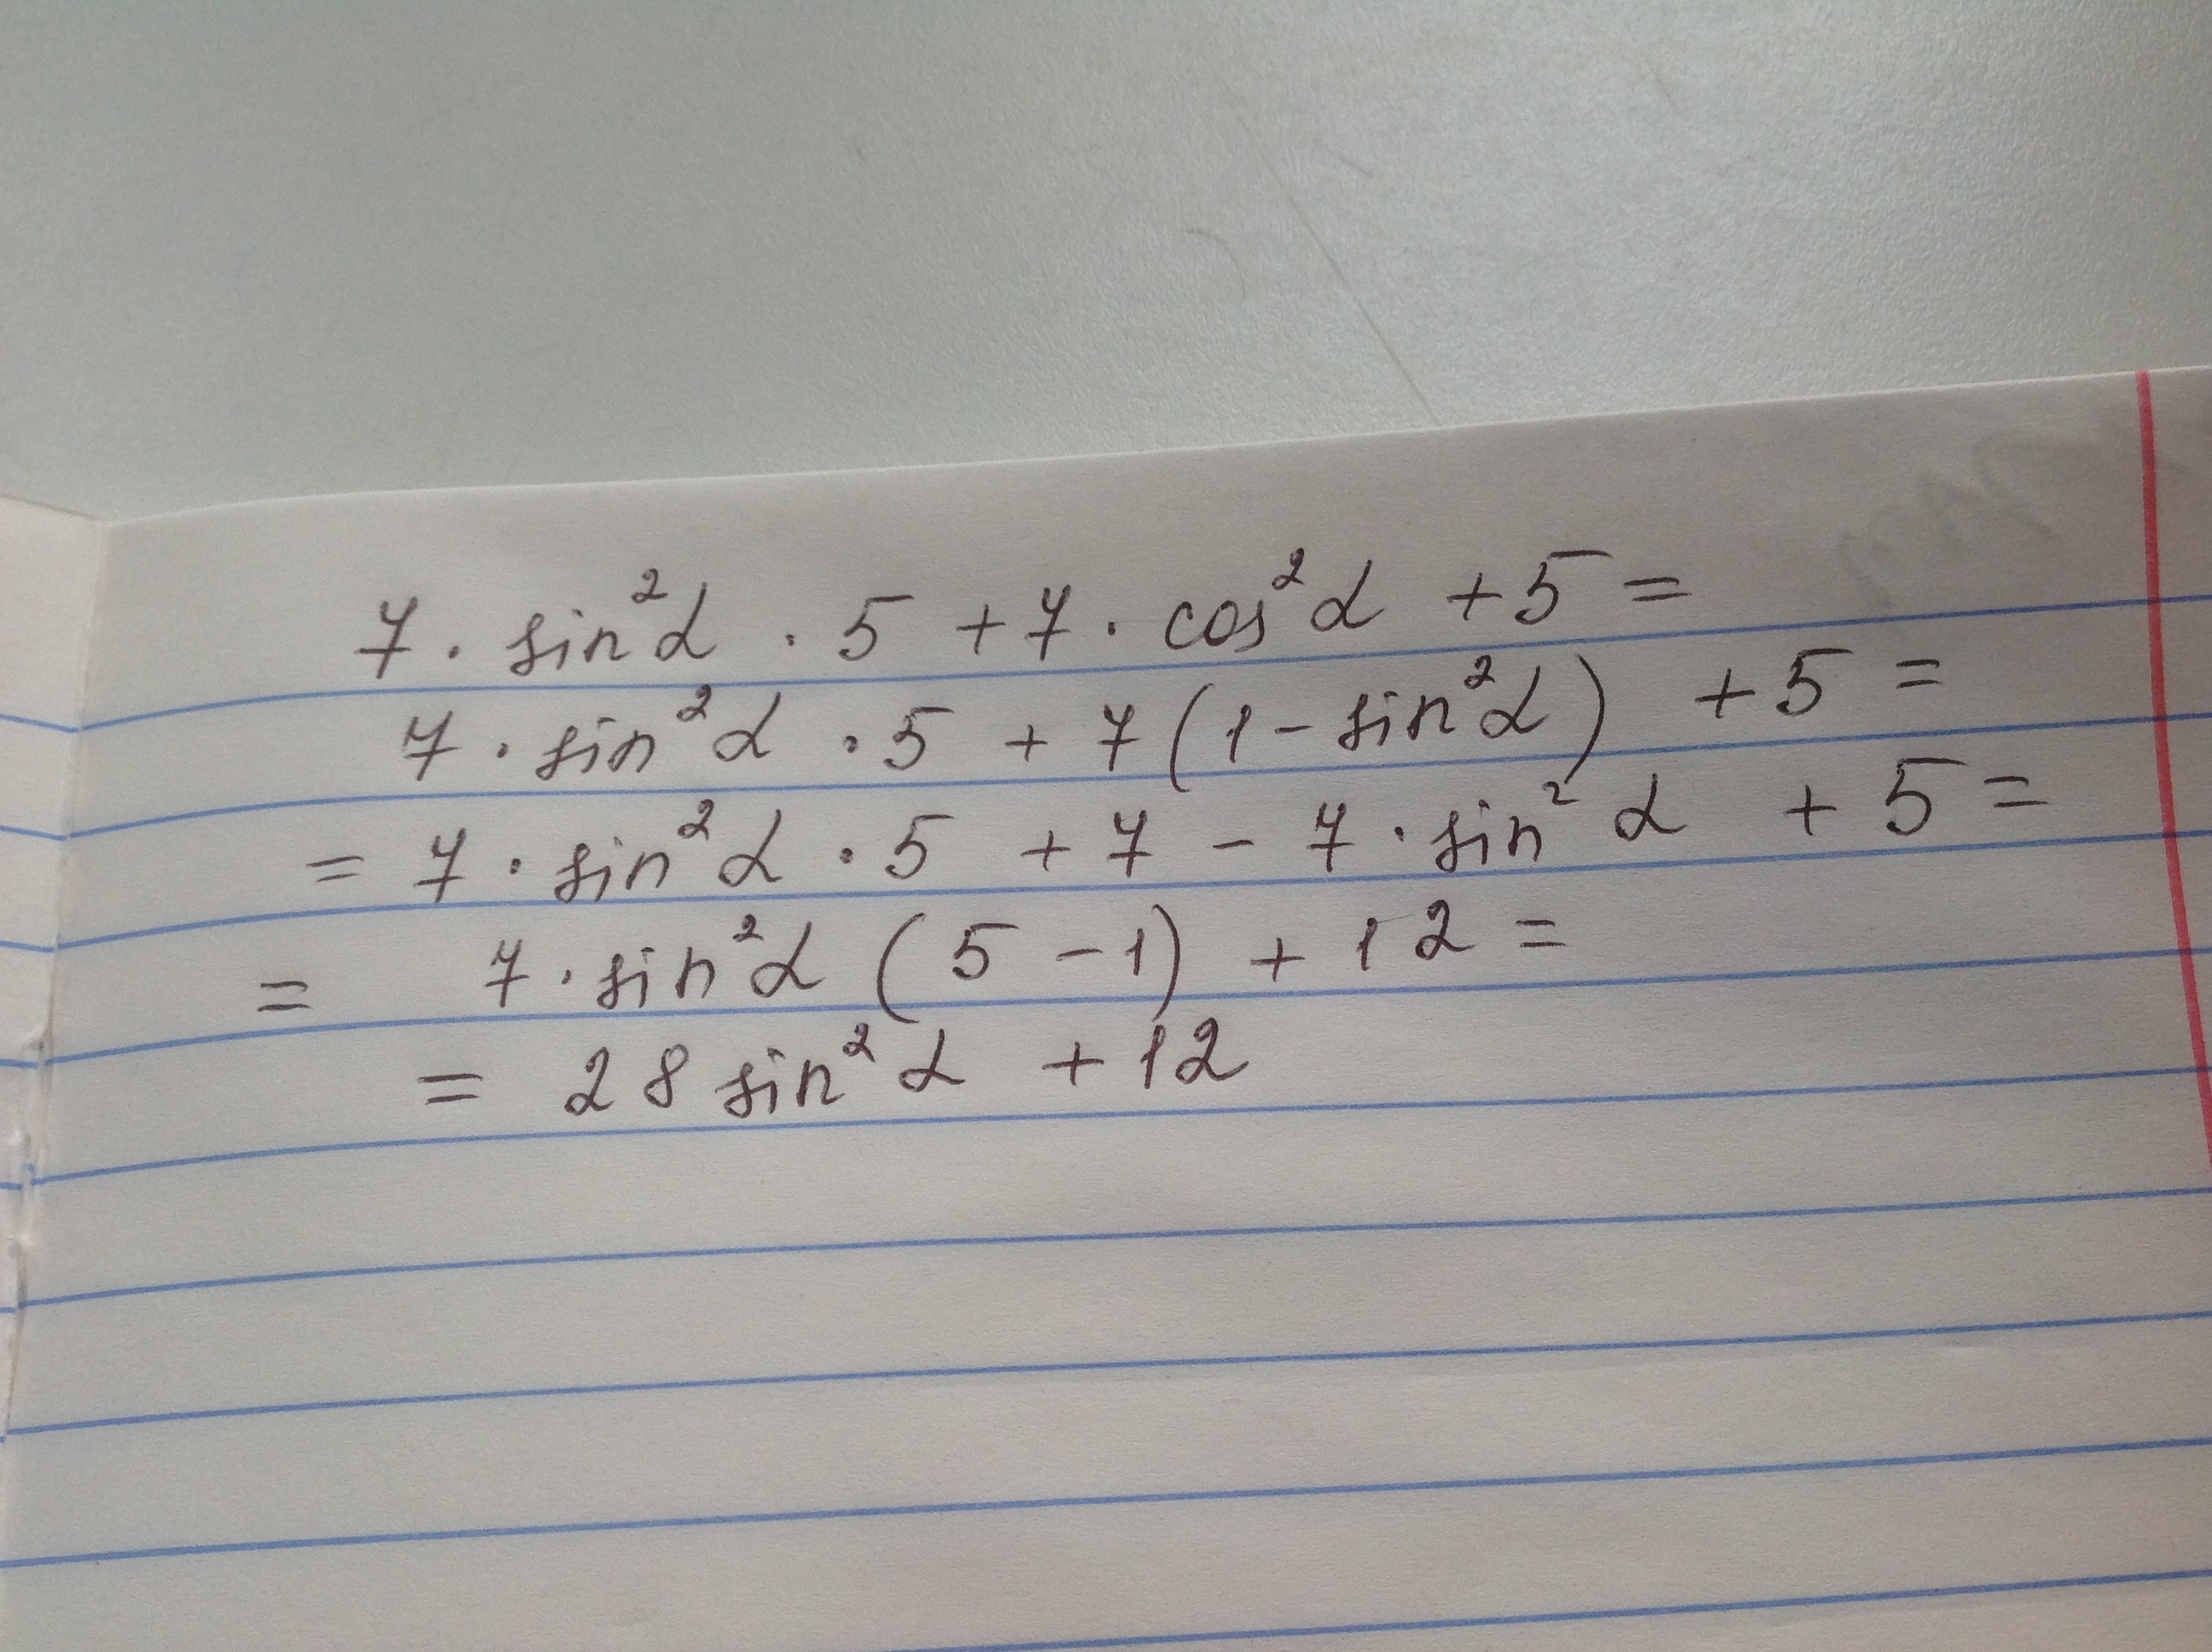 7 · sin²α · 5 + 7 · cos²α + 5 =
7 · sin²α · 5 + 7 (1 - sin²α) + 5 =
= 7 · sin²α · 5 + 7 - 7 · sin²α + 5 =
= 7 · sin²α (5 - 1) + 12 =
= 28 sin²α + 12